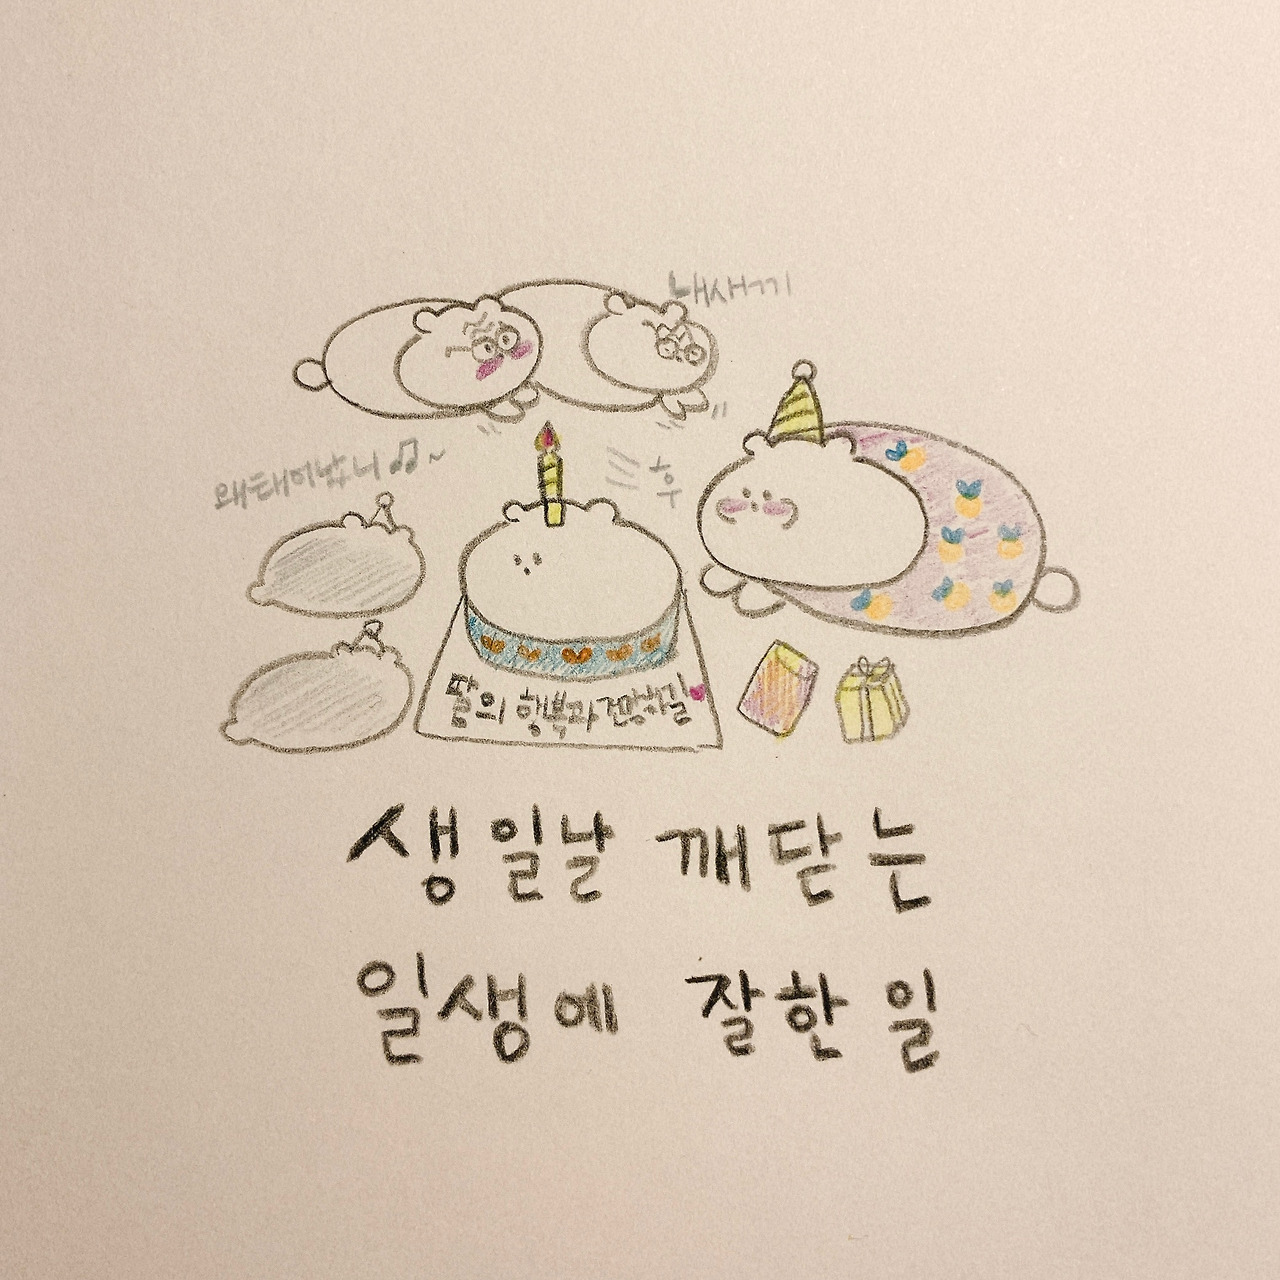 내새끼
왜태어났니
후
딸의 행복과 건강하길
생일날 깨닫는
일생에 잘한 일